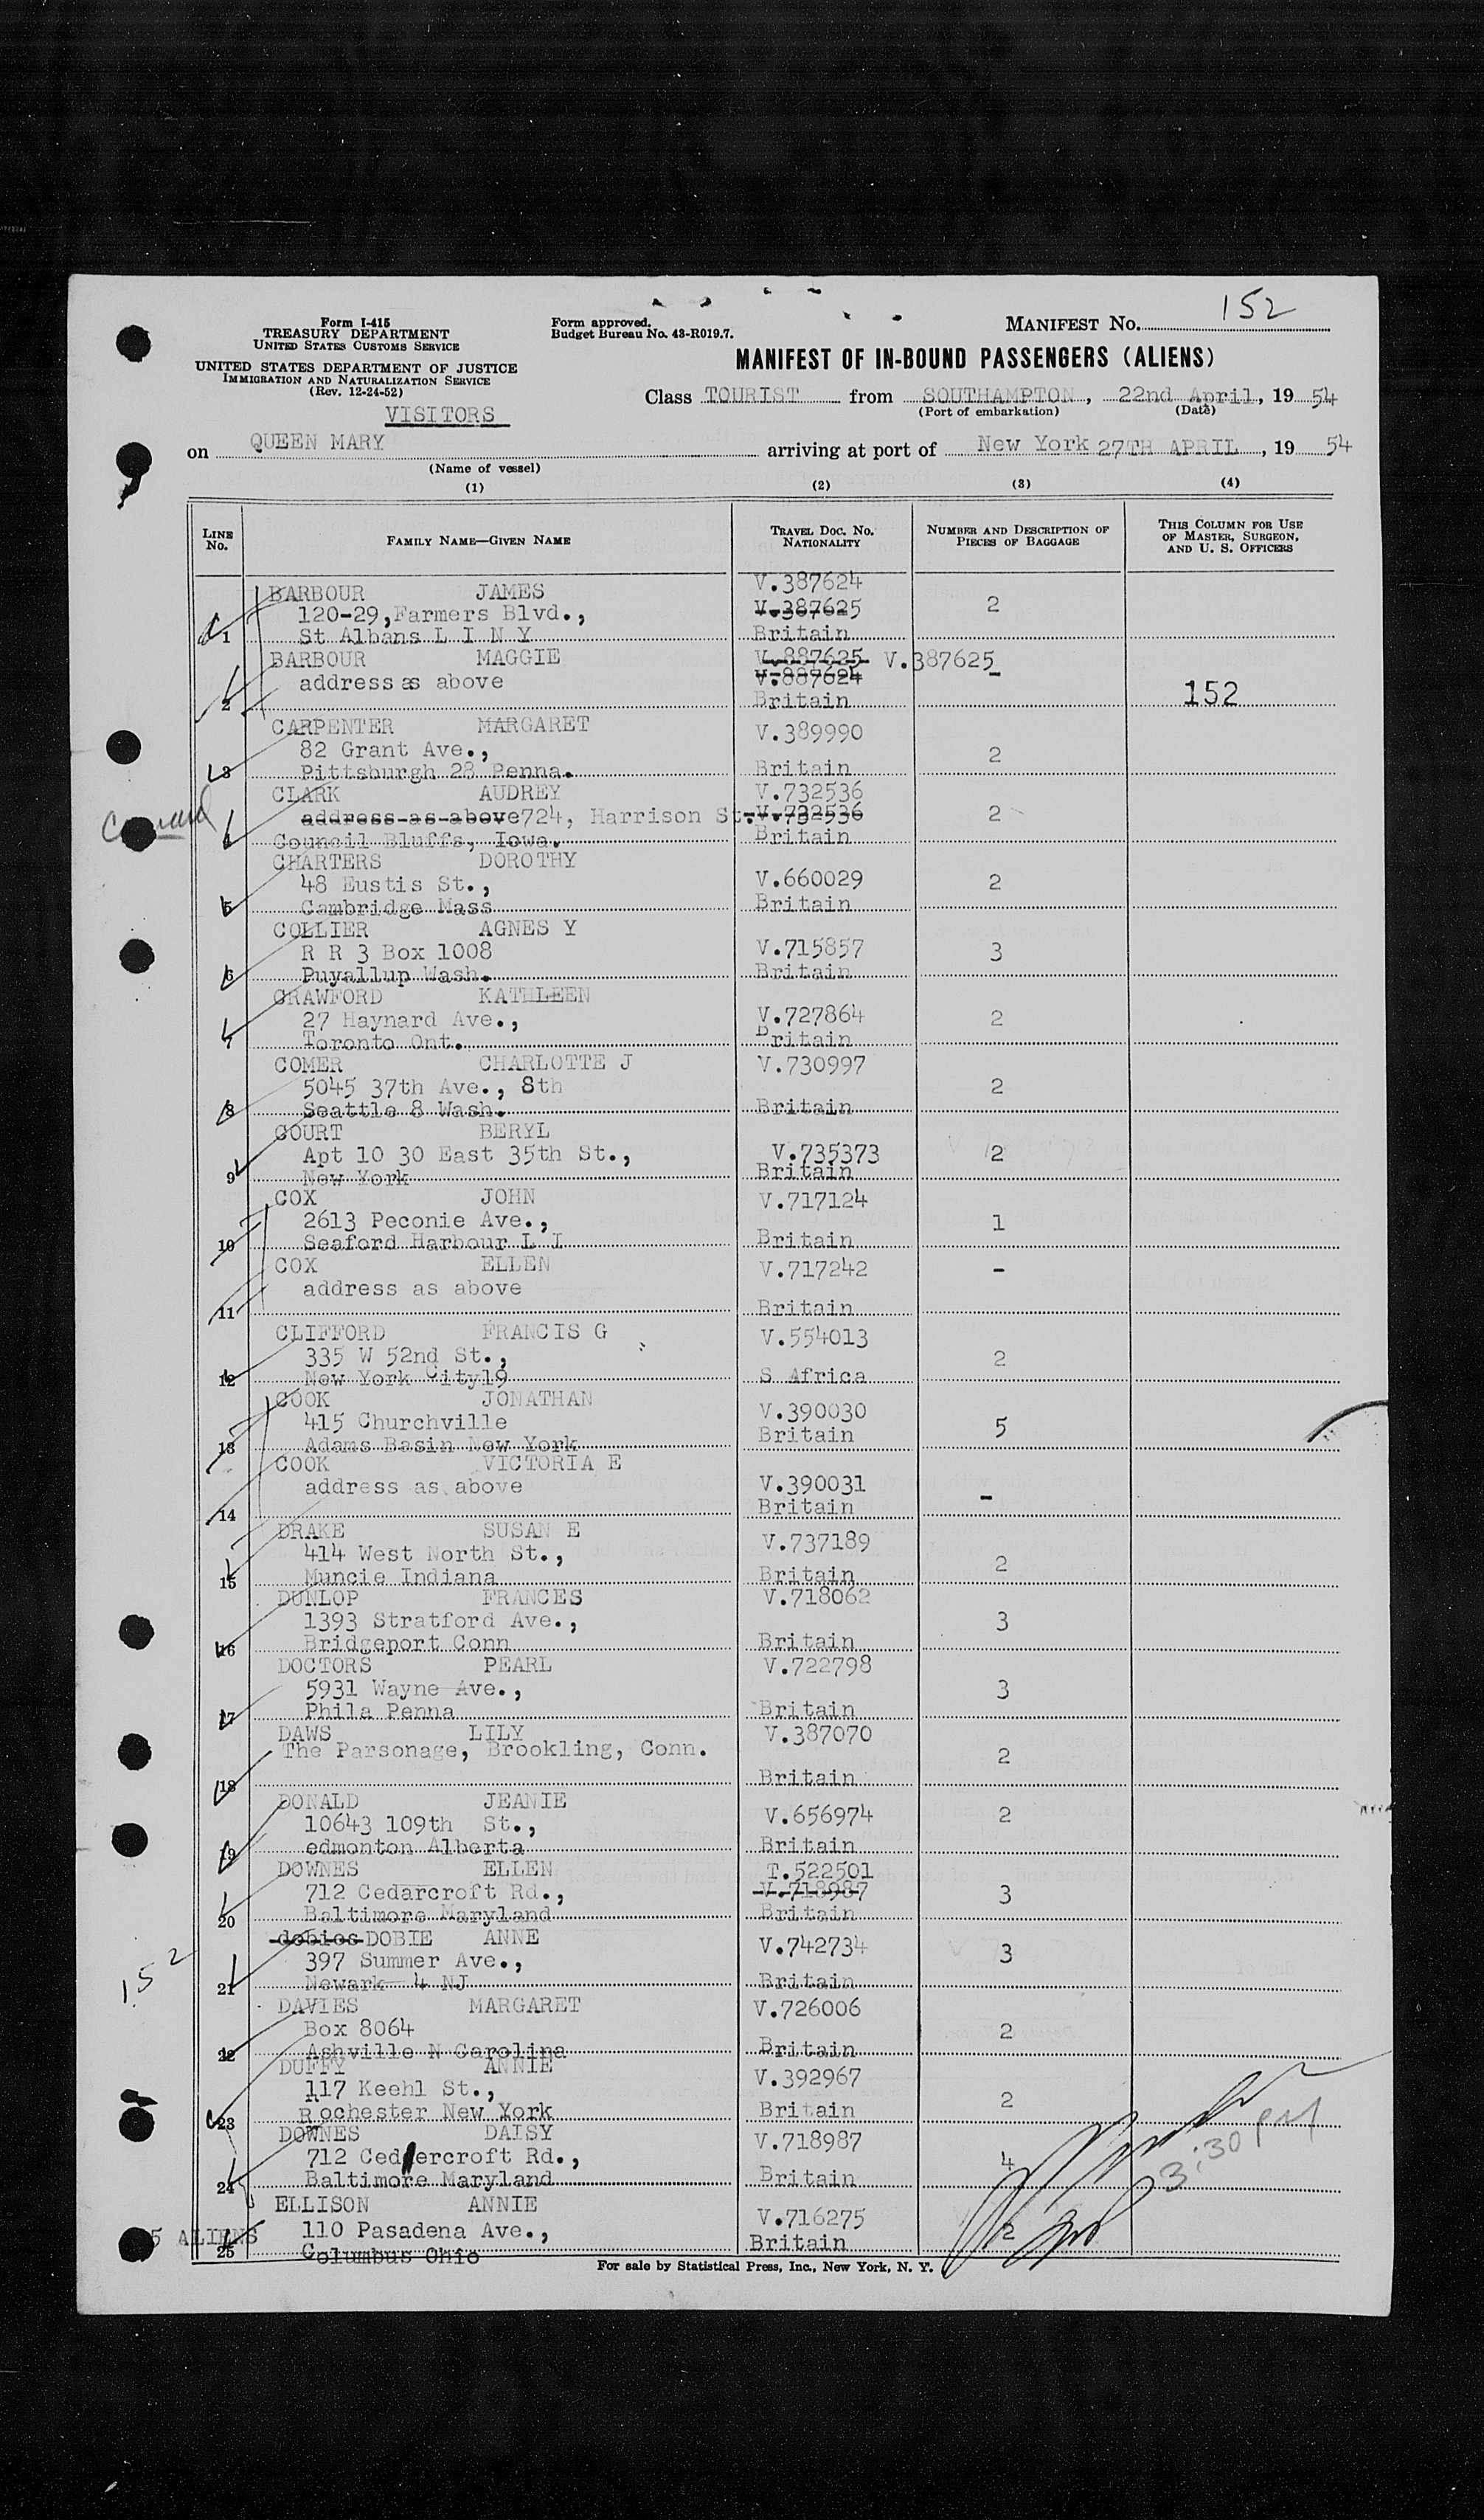 152
Form I-415
TREASURY DEPARTMENT
UNITED STATES CUSTOMS SERVICE
Form approved.
Budget Bureau No. 43-R019.7.
MANIFEST NO.
UNITED STATES DEPARTMENT OF JUSTICE
IMMIGRATION AND NATURALIZATION SERVICE
(Rev. 12-24-52)
MANIFEST OF IN-BOUND PASSENGERS (ALIENS)
VISITORS
Class TOURIST from SOUTHAMPTON, 22nd April, 19 54
(Port of embarkation) (Date)
on QUEEN MARY arriving at port of New York 27TH APRIL, 19 54
(Name of vessel)
(1) (2) (3) (4)
LINE No. FAMILY NAME—GIVEN NAME TRAVEL DOC. NO. NATIONALITY NUMBER AND DESCRIPTION OF PIECES OF BAGGAGE THIS COLUMN FOR USE OF MASTER, SURGEON, AND U. S. OFFICERS
BARBOUR JAMES V.387624
120-29,Farmers Blvd., V.387625 2
1 St Albans L I N Y Britain
BARBOUR MAGGIE V.887625 V.387625
address as above V.887624 -
2 Britain 152
CARPENTER MARGARET V.389990
82 Grant Ave., 2
3 Pittsburgh 28 Penna. Britain
CLARK AUDREY V.732536
address as above 724, Harrison St. V.732536 2
4 Council Bluffs, Iowa. Britain
CHARTERS DOROTHY
48 Eustis St., V.660029 2
5 Cambridge Mass Britain
COLLIER AGNES Y
R R 3 Box 1008 V.715857 3
6 Puyallup Wash. Britain
CRAWFORD KATHLEEN
27 Haynard Ave., V.727864 2
7 Toronto Ont. Britain
COMER CHARLOTTE J V.730997
5045 37th Ave., 8th 2
8 Seattle 8 Wash. Britain
COURT BERYL
Apt 10 30 East 35th St., V.735373 2
9 New York Britain
COX JOHN V.717124
2613 Peconie Ave., 1
10 Seaford Harbour L I Britain
COX ELLEN V.717242 -
address as above
11 Britain
CLIFFORD FRANCIS G V.554013
335 W 52nd St., 2
12 New York City19 S Africa
COOK JONATHAN V.390030
415 Churchville Britain 5
13 Adams Basin New York
COOK VICTORIA E
address as above V.390031 -
14 Britain
DRAKE SUSAN E V.737189
414 West North St., 2
15 Muncie Indiana Britain
DUNLOP FRANCES V.718062
1393 Stratford Ave., 3
16 Bridgeport Conn Britain
DOCTORS PEARL V.722798
5931 Wayne Ave., 3
17 Phila Penna Britain
DAWS LILY V.387070
The Parsonage, Brookling, Conn. 2
18 Britain
DONALD JEANIE
10643 109th St., V.656974 2
19 edmonton Alberta Britain
DOWNES ELLEN T.522501
712 Cedarcroft Rd., V.718987 3
20 Baltimore Maryland Britain
dobios DOBIE ANNE V.742734
152 397 Summer Ave., 3
21 Newark 4 NJ Britain
DAVIES MARGARET V.726006
Box 8064 2
22 Ashville N Carolina Britain
DUFFY ANNIE V.392967
117 Keehl St., 2
23 Rochester New York Britain
DOWNES DAISY V.718987
712 Cedercroft Rd., 4
24 Baltimore Maryland Britain
3:30 PM
ELLISON ANNIE V.716275
5 ALIENS 110 Pasadena Ave., 2
25 Columbus Ohio Britain
For sale by Statistical Press, Inc., New York, N. Y.